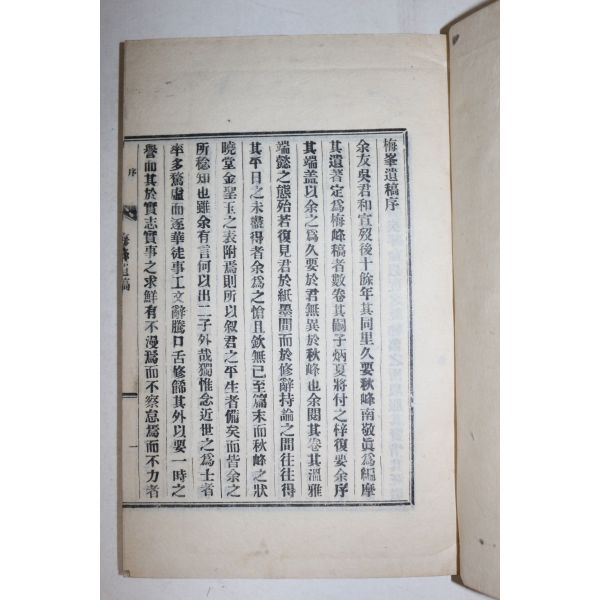 梅峯遺稿序
余友吳君和宣歿後十餘年其同里久要秋峰南敬眞爲編摩
其遺著定爲梅峰稿者數卷其嗣子炳夏將付之梓復要余序
其端盖以余之爲久要於君無異於秋峰也余閱其卷其溫雅
端懿之態殆若復見君於紙墨間而於修辭持論之間往往得
其平日之未盡得者余爲之愴且欽無已至篇末而秋峰之狀
曉堂金聖玉之表附焉則所以叙君之平生者備矣而皆余之
所稔知也雖余有言何以出二子外哉獨惟念近世之爲士者
率多騖虛而逐華徒事工文辭騰口舌修餙其外以要一時之
譽而其於實志實事之求鮮有不漫焉而不察怠焉而不力者
序
梅峰遺稿
一